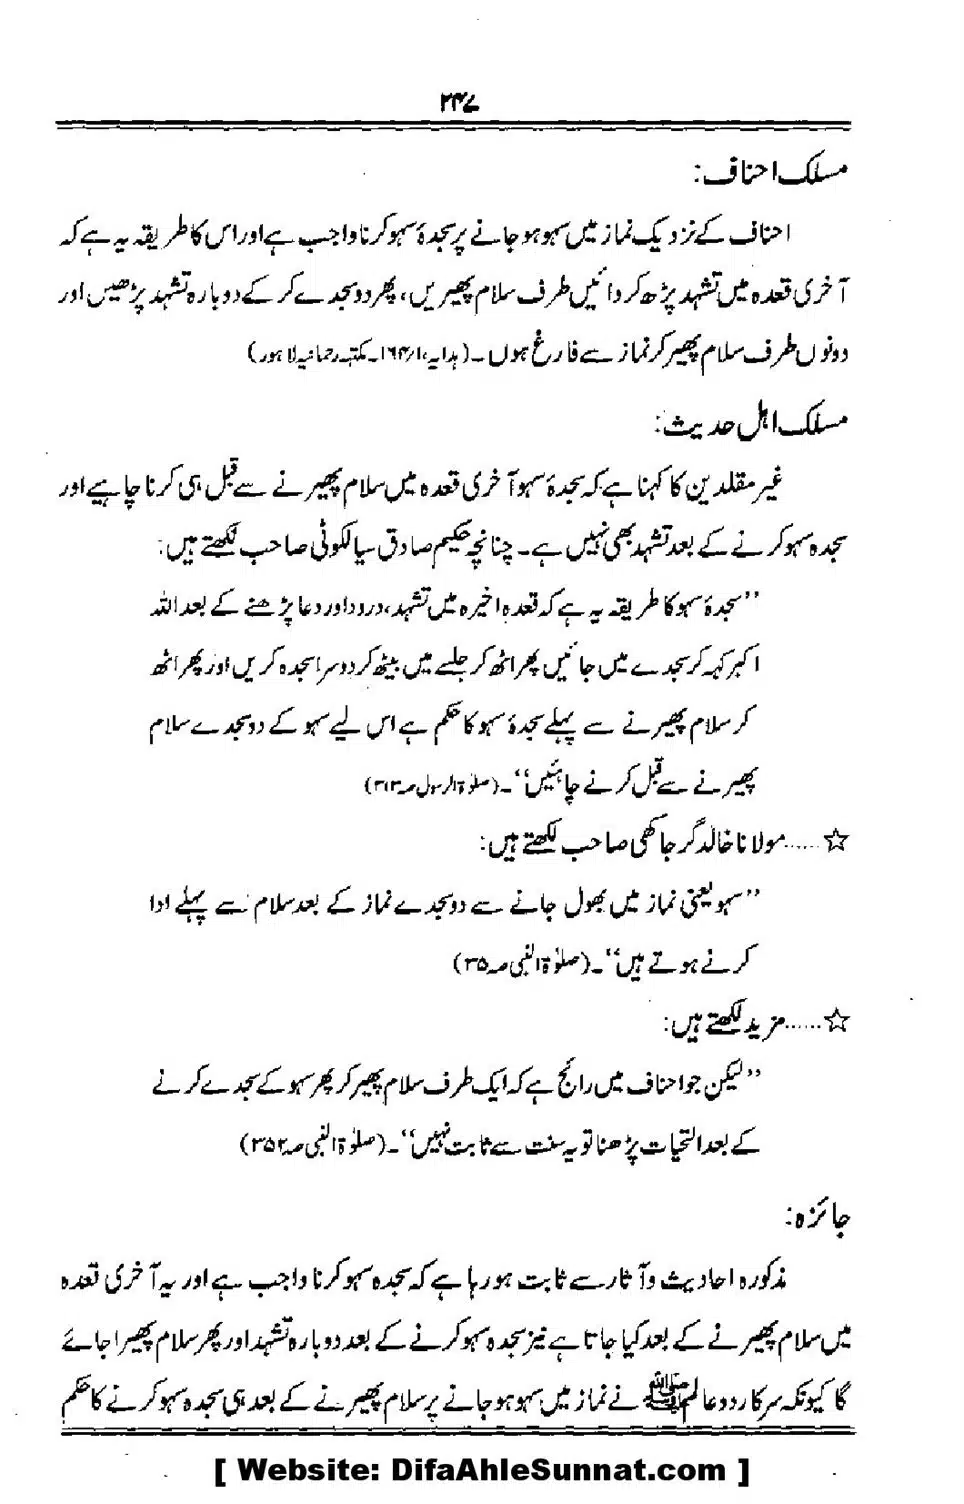 ۲۴۷
مسلک احناف:
احناف کے نزدیک نماز میں سہو ہو جانے پر سجدۂ سہو کرنا واجب ہے اور اس کا طریقہ یہ ہے کہ
آخری قعدہ میں تشہد پڑھ کر دائیں طرف سلام پھیریں، پھر دو سجدے کر کے دوبارہ تشہد پڑھیں اور
دونوں طرف سلام پھیر کر نماز سے فارغ ہوں۔ (ہدایہ، ۱/۱۶۴۔ مکتبہ رحمانیہ لاہور)
مسلک اہل حدیث:
غیر مقلدین کا کہنا ہے کہ سجدۂ سہو آخری قعدہ میں سلام پھیرنے سے قبل ہی کرنا چاہیے اور
سجدہ سہو کرنے کے بعد تشہد بھی نہیں ہے۔ چنانچہ حکیم صادق سیالکوٹی صاحب لکھتے ہیں:
’’سجدۂ سہو کا طریقہ یہ ہے کہ قعدہ اخیرہ میں تشہد، درود اور دعا پڑھنے کے بعد اللہ
اکبر کہہ کر سجدے میں جائیں پھر اٹھ کر جلسے میں بیٹھ کر دوسرا سجدہ کریں اور پھر اٹھ
کر سلام پھیرنے سے پہلے سجدۂ سہو کا حکم ہے اس لیے سہو کے دو سجدے سلام
پھیرنے سے قبل کرنے چاہئیں‘‘۔ (صلوٰۃ الرسول صـ۳۱۳)
☆......مولانا خالد گرجاکھی صاحب لکھتے ہیں:
’’سہو یعنی نماز میں بھول جانے سے دو سجدے نماز کے بعد سلام سے پہلے ادا
کرنے ہوتے ہیں‘‘۔ (صلوٰۃ النبی صـ۳۵۰)
☆......مزید لکھتے ہیں:
’’لیکن جو احناف میں رائج ہے کہ ایک طرف سلام پھیر کر پھر سہو کے سجدے کرنے
کے بعد التحیات پڑھنا تو یہ سنت سے ثابت نہیں‘‘۔ (صلوٰۃ النبی صـ۳۵۲)
جائزہ:
مذکورہ احادیث و آثار سے ثابت ہو رہا ہے کہ سجدہ سہو کرنا واجب ہے اور یہ آخری قعدہ
میں سلام پھیرنے کے بعد کیا جاتا ہے نیز سجدہ سہو کرنے کے بعد دوبارہ تشہد اور پھر سلام پھیرا جائے
گا کیونکہ سرکار دو عالم ﷺ نے نماز میں سہو ہو جانے پر سلام پھیرنے کے بعد ہی سجدہ سہو کرنے کا حکم
[ Website: DifaAhleSunnat.com ]